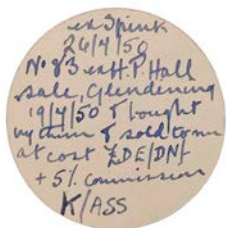 ex Spink
26/4/50
No 83 ex H.P. Hall
sale, Glendening
19/4/50 & bought
by them & sold to me
at cost £DE/DNf
+ 5% commission
K/ASS